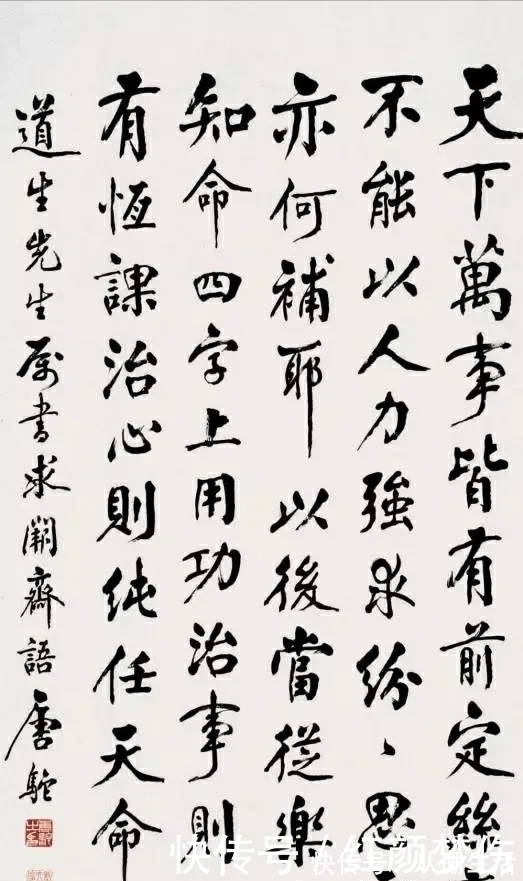 天下萬事皆有前定絲
不能以人力強求紛〻思
亦何補耶以後當從樂
知命四字上用功治事則
有恆課治心則純任天命
道生先生属書求闕齋語唐駝
快传号/红颜